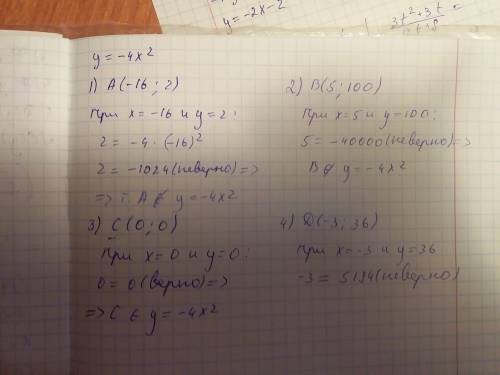 y = -2x - 2
3t²+3t
y = -4x²
1) A(-16; 2)
При x = -16 и y = 2:
2 = -4 · (-16)²
2 = -1024 (неверно) =>
=> т. A ∉ y = -4x²
2) B(5; 100)
При x = 5 и y = 100:
5 = -40000 (неверно) =>
B ∉ y = -4x²
3) C(0; 0)
При x = 0 и y = 0:
0 = 0 (верно) =>
=> C ∈ y = -4x²
4) D(-3; 36)
При x = -3 и y = 36
-3 = 5184 (неверно)